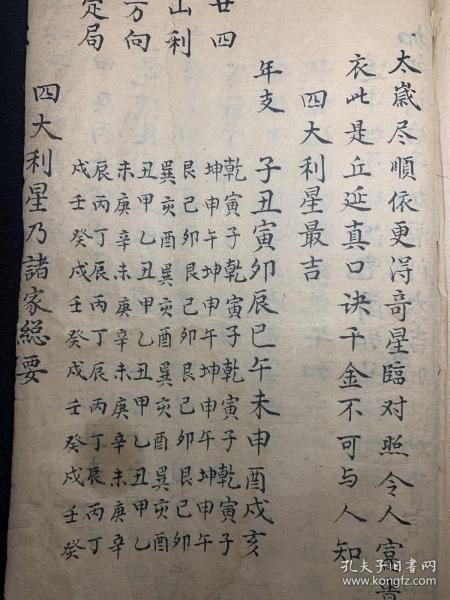 太歲尽順依更淂奇星臨对照令人富貴
衣此是丘延真口诀千金不可与人知
四大利星最吉
年支 子丑寅卯辰巳午未申酉戌亥
乾寅子乾寅子乾寅子乾寅子
坤申午坤申午坤申午坤申午
艮己卯艮己卯艮己卯艮己卯
巽亥酉巽亥酉巽亥酉巽亥酉
丑甲乙丑甲乙丑甲乙丑甲乙
未庚辛未庚辛未庚辛未庚辛
辰丙丁辰丙丁辰丙丁辰丙丁
戌壬癸戌壬癸戌壬癸戌壬癸
四大利星乃諸家総要
廿四
山利
方向
定局
孔夫子旧书网
kongfz.com